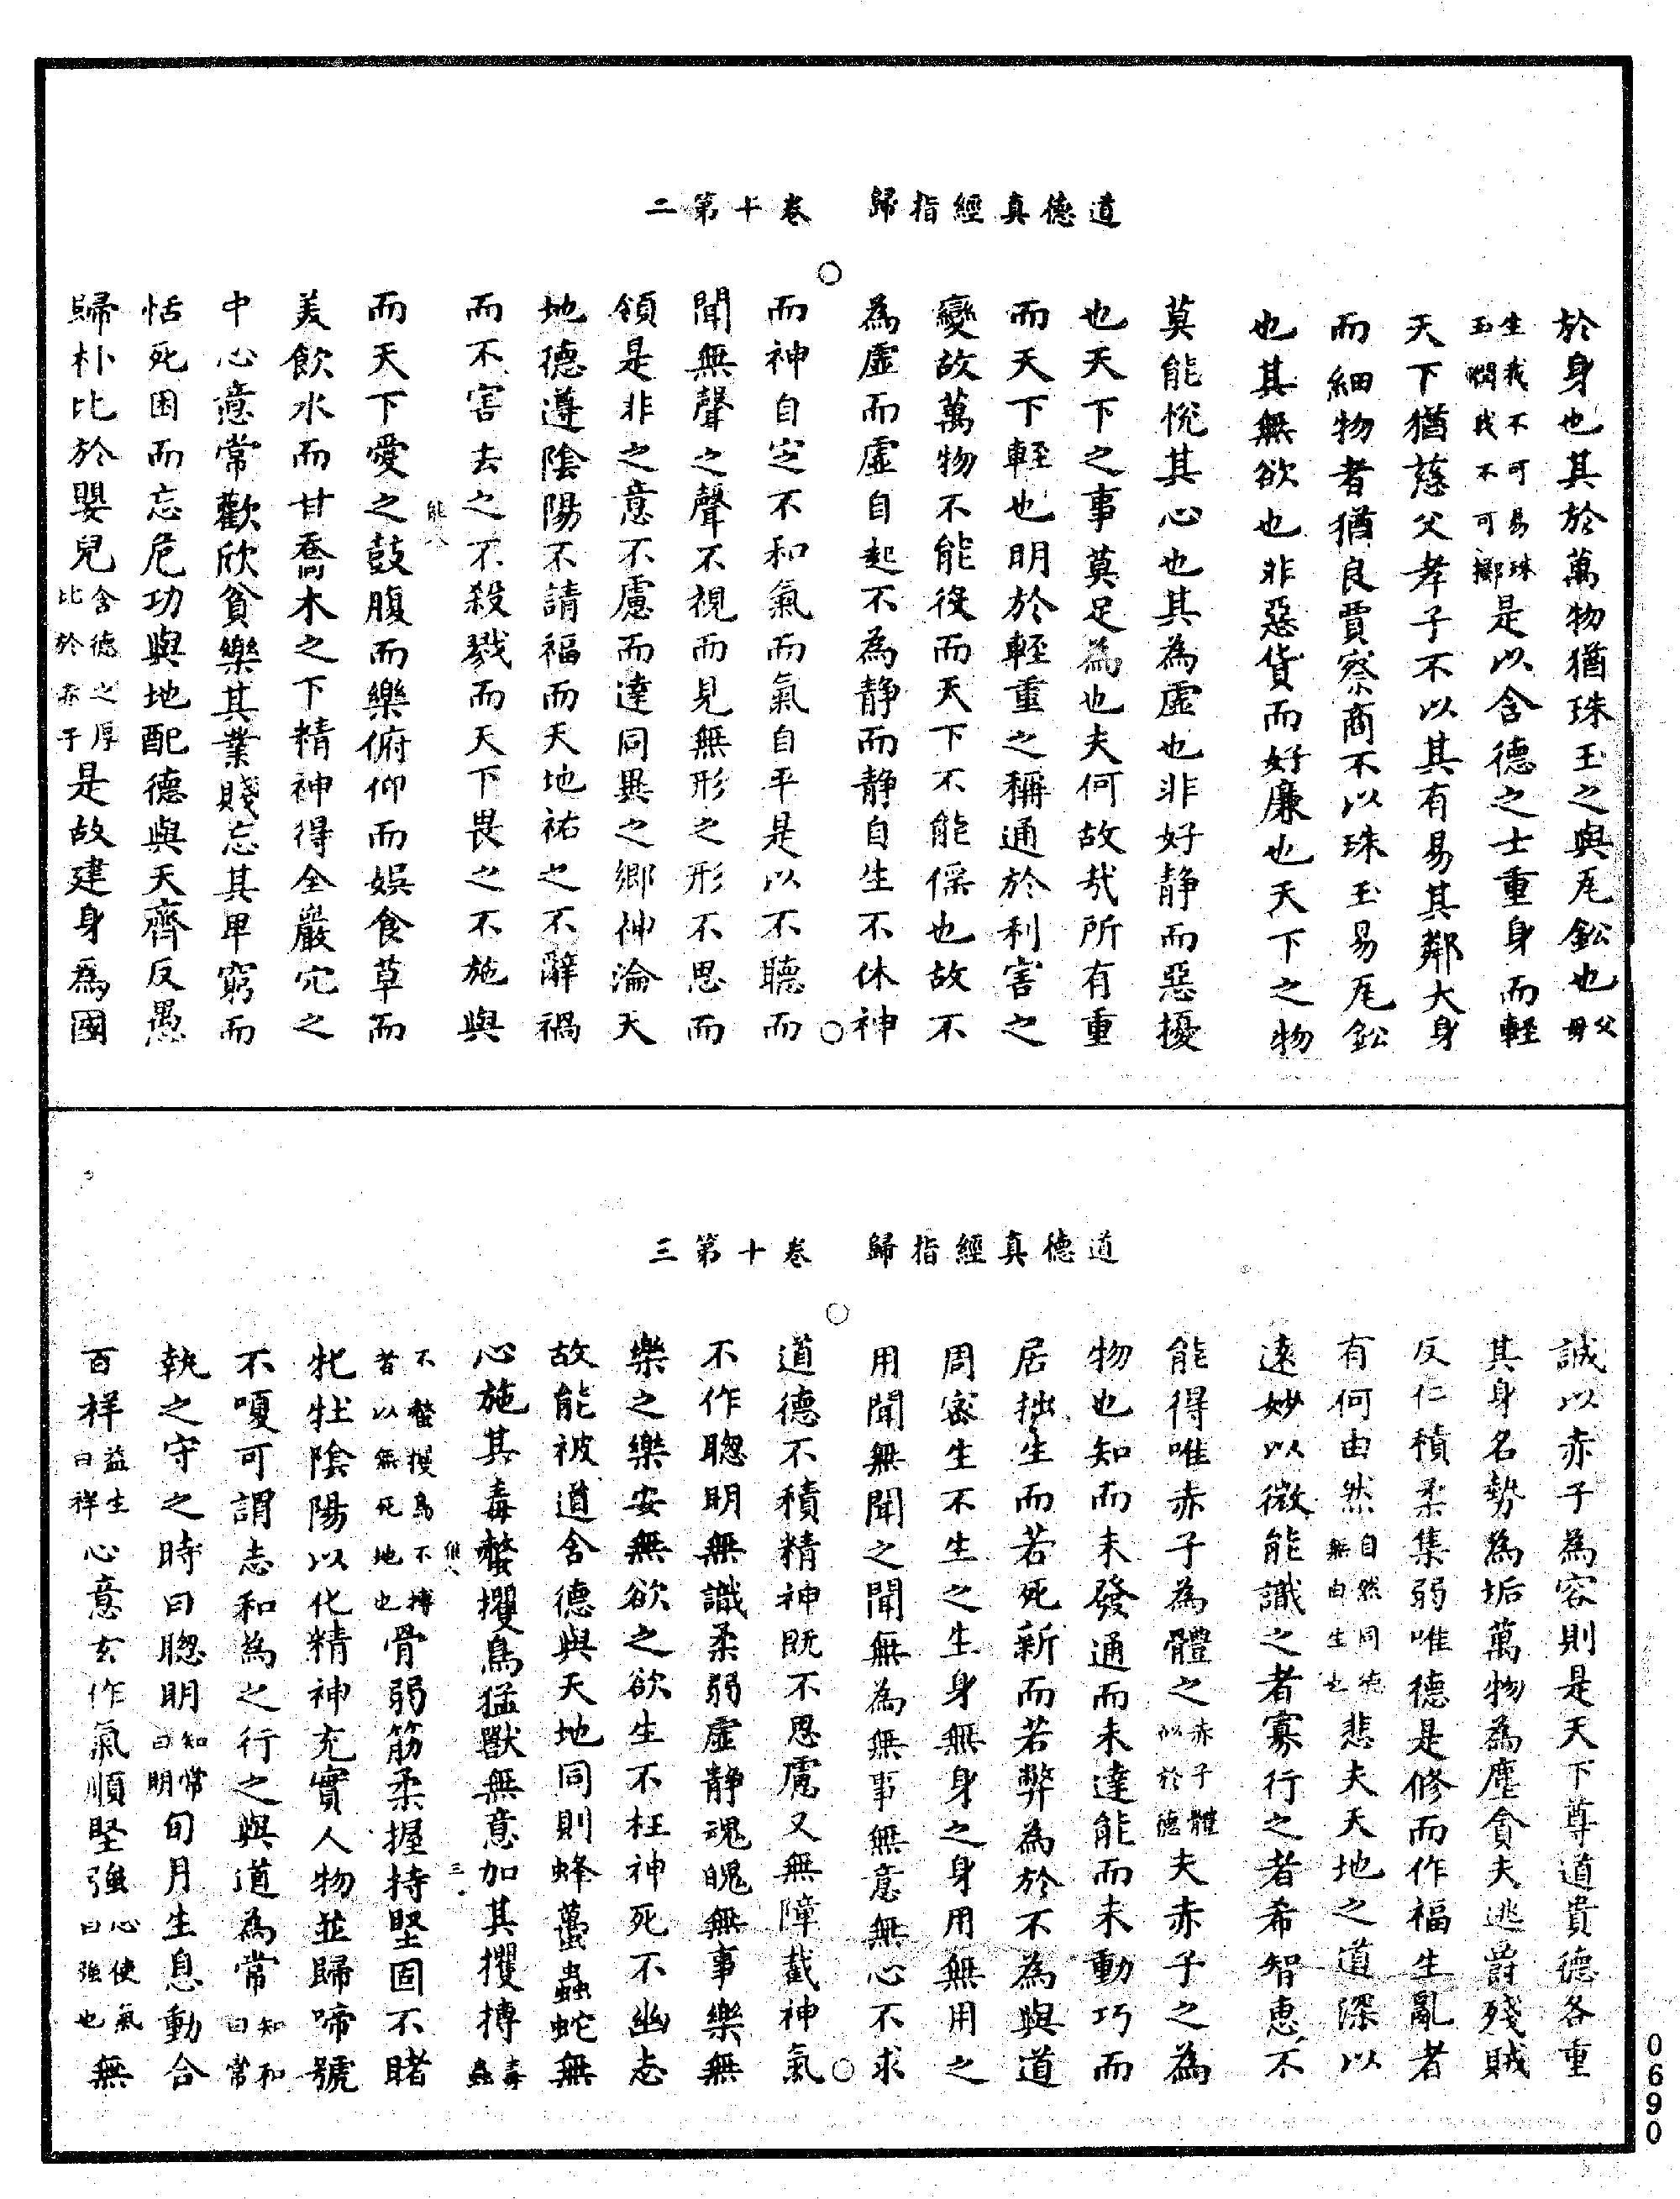 道德真經指歸　卷十第二
於身也其於萬物猶珠玉之與瓦鈆也父母
生我不可易珠玉憫我不可擲是以含德之士重身而輕
天下猶慈父孝子不以其有易其鄰大身
而細物者猶良賈察商不以珠玉易瓦鈆
也其無欲也非惡貨而好廉也天下之物
莫能悅其心也其為虛也非好静而惡擾
也天下之事莫足為也夫何故哉所有重
而天下輕也明於輕重之稱通於利害之
變故萬物不能役而天下不能傜也故不
為虛而虛自起不為静而静自生不休神
而神自定不和氣而氣自平是以不聽而
聞無聲之聲不視而見無形之形不思而
領是非之意不慮而達同異之鄉神淪天
地德遵陰陽不請福而天地祐之不辭禍
而不害去之不殺戮而天下畏之不施與
能八
而天下愛之鼓腹而樂俯仰而娛食草而
美飲水而甘喬木之下精神得全巖穴之
中心意常歡欣貧樂其業賤忘其卑窮而
恬死困而忘危功與地配德與天齊反愚
歸朴比於嬰兒含德之厚比於赤子是故建身為國
道德真經指歸　卷十第三
誠以赤子為容則是天下尊道貴德各重
其身名勢為垢萬物為塵貪夫逃爵殘賊
反仁積柔集弱唯德是修而作福生亂者
有何由然自然同德無由生也悲夫天地之道深以
遠妙以微能識之者寡行之者希智惠不
能得唯赤子為體之赤子體似於德夫赤子之為
物也知而未發通而未達能而未動巧而
居拙生而若死新而若弊為於不為與道
周密生不生之生身無身之身用無用之
用聞無聞之聞無為無事無意無心不求
道德不積精神既不思慮又無障截神氣
不作聰明無識柔弱虛静魂魄無事樂無
樂之樂安無欲之欲生不枉神死不幽志
故能被道含德與天地同則蜂蠆蟲蛇無
心施其毒螫攫鳥猛獸無意加其攫搏毒蟲
能八　三
不螫攫鳥不搏者以無死地也骨弱筋柔握持堅固不睹
牝牡陰陽以化精神充實人物並歸啼號
不嗄可謂志和為之行之與道為常知和曰常
執之守之時曰聰明知常曰明旬月生息動合
百祥益生曰祥心意玄作氣順堅強心使氣曰強也無
0690